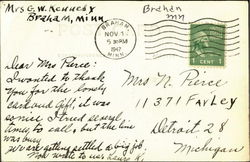 Mrs G. W. Kennedy
Braham, Minn
Braham
mn
BRAHAM
NOV 1
5 30 PM
1947
MINN.
1 CENT 1
Dear Mrs Pierce:
I wanted to thank
you for the lovely
card and Gift, it was
so nice I tried several
times to call, but the line
was busy
We are getting settled a big job.
write to us
Mrs N. Pierce
11371 Farley
Detroit 28
Michigan